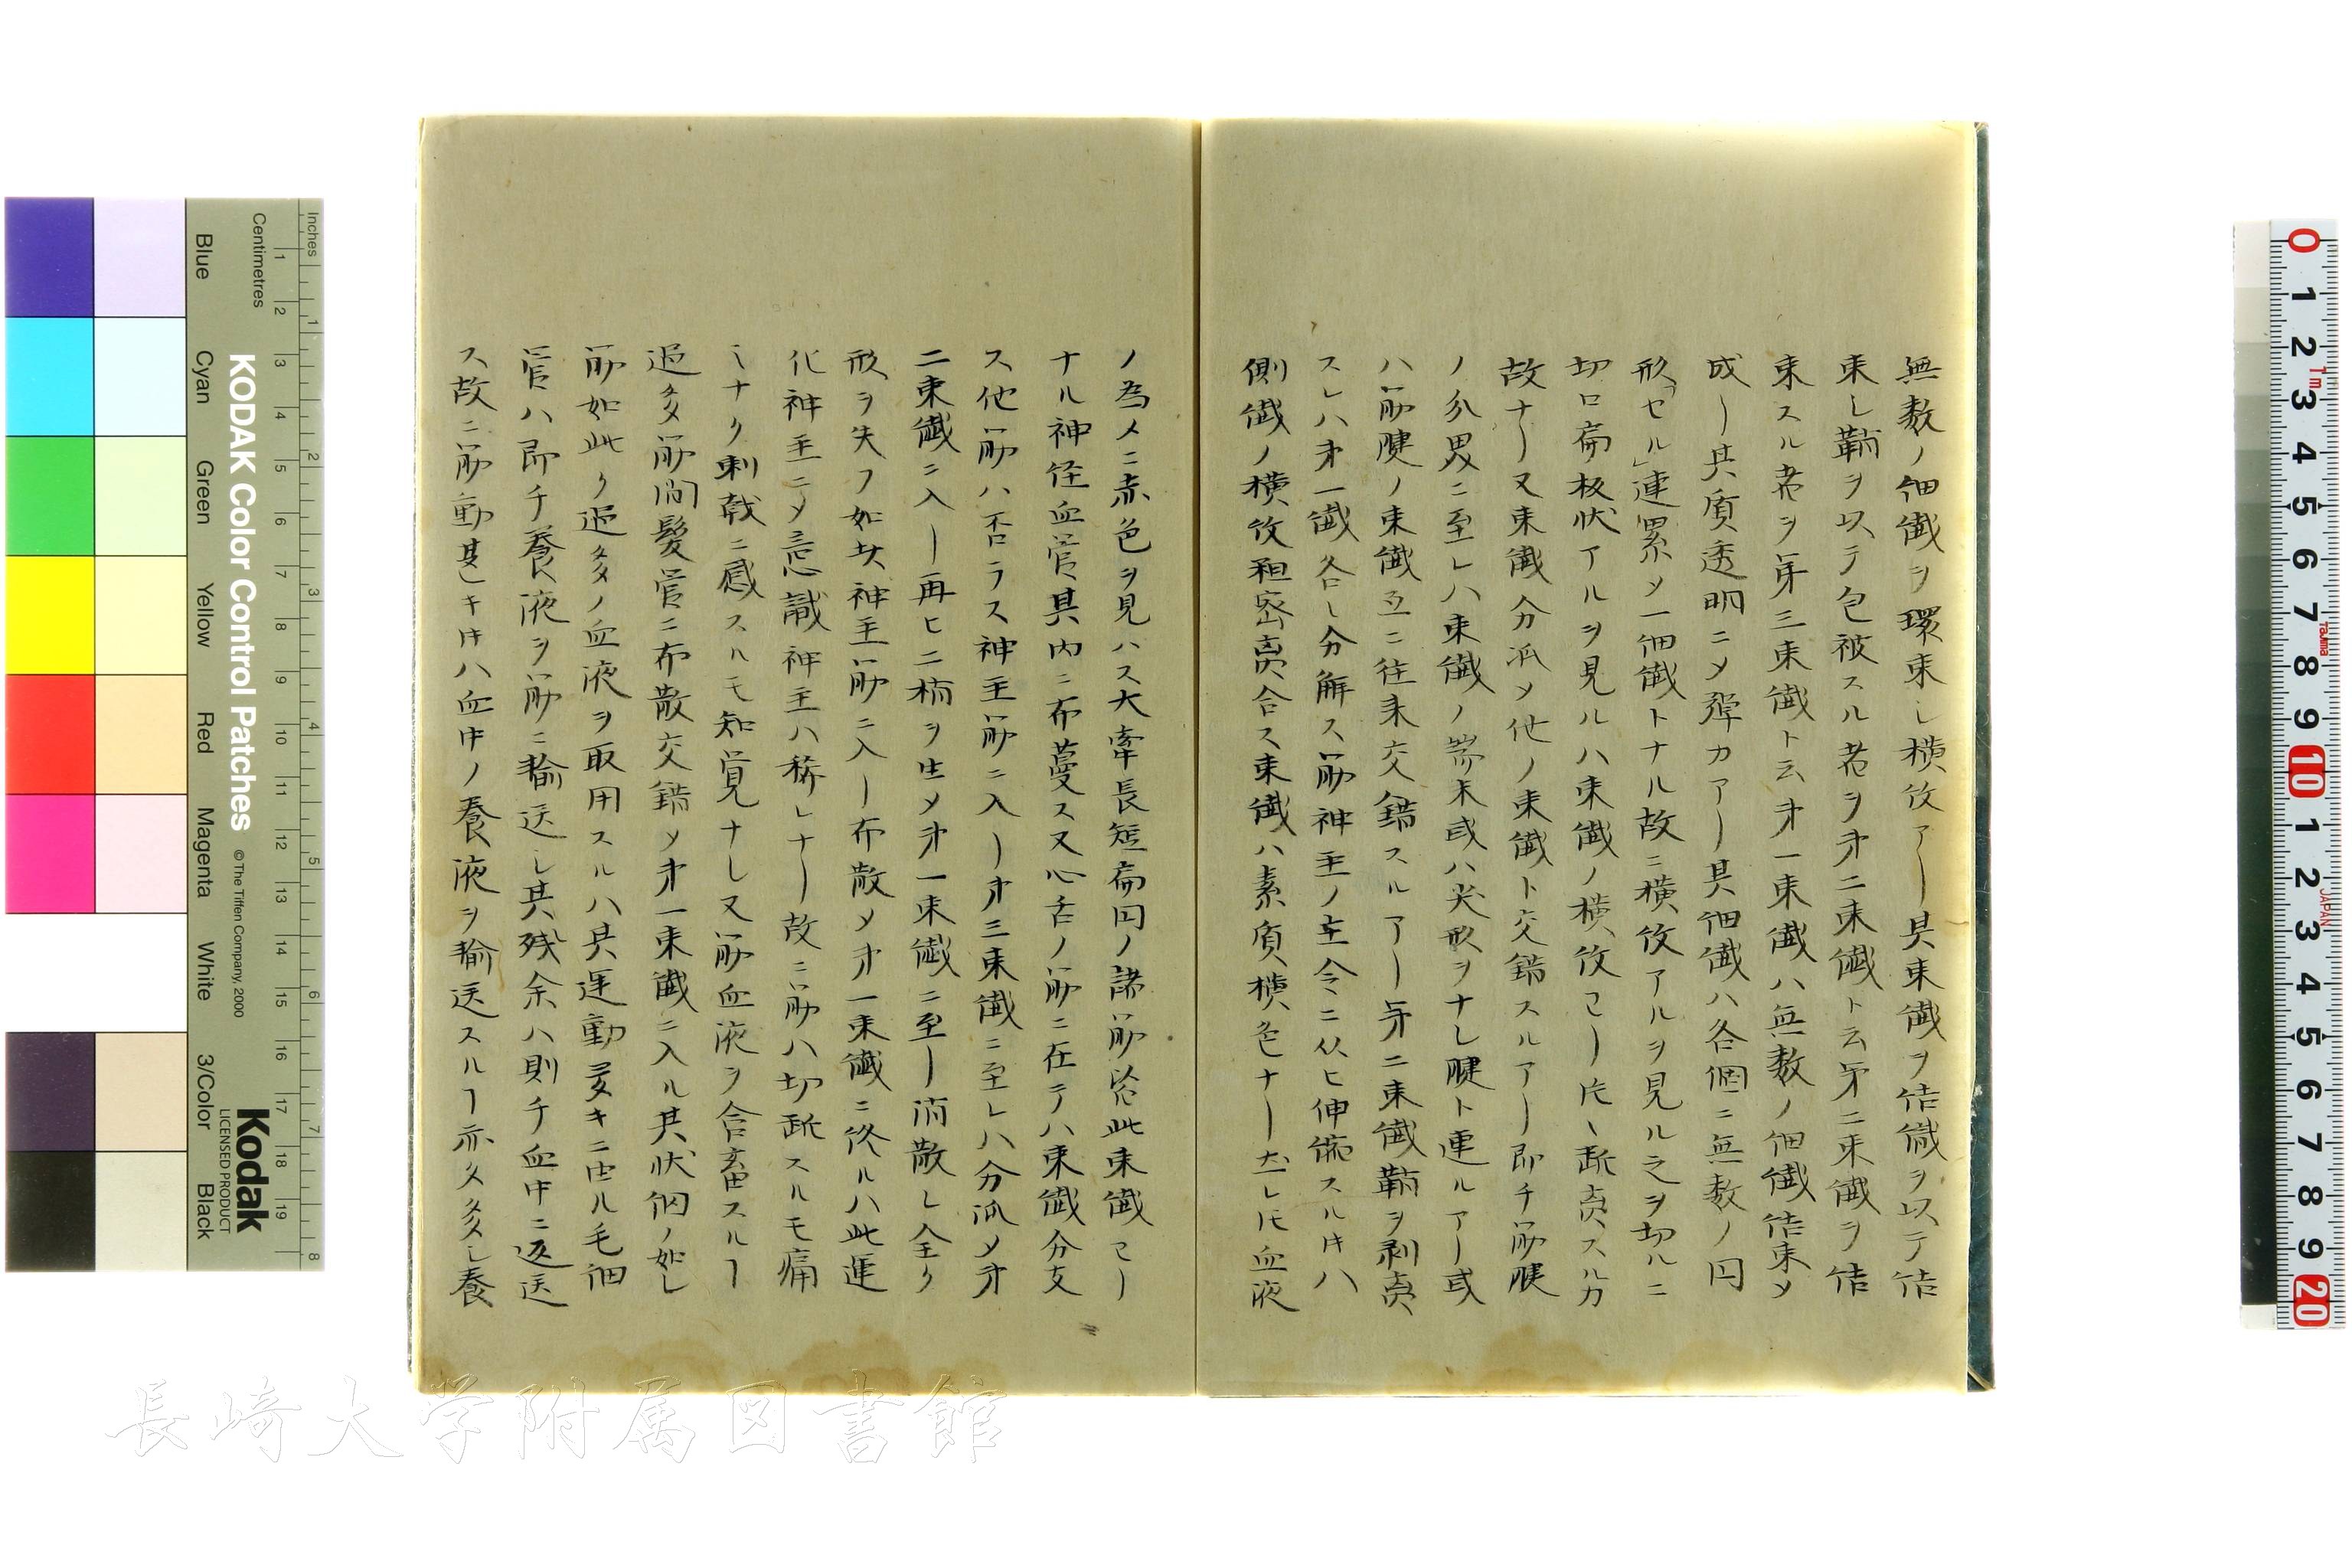 無数ノ細繊ヲ環束シ横紋アリ其束繊ヲ結織ヲ以テ結
束シ鞘ヲ以テ包被スル者ヲ第二束繊ト云第二束繊ヲ結
束スル者ヲ第三束繊ト云第一束繊ハ無数ノ細繊結束〆
成リ其質透明ニ〆弾力アリ其細繊ハ各個ニ無数ノ円
形「セル」連累〆一細繊トナル故ニ横紋アルヲ見ル之ヲ切ルニ
切口扁板状アルヲ見ルハ束繊ノ横紋ヨリ片々断裂スルカ
故ナリ又束繊分派〆他ノ束繊ト交錯スルアリ即チ筋腱
ノ分界ニ至レハ束繊ノ端末或ハ尖形ヲナシ腱ト連ルアリ或
ハ筋腱ノ束繊互ニ往来交錯スルアリ第二束繊鞘ヲ剥
スレハ第一繊各々分解ス筋神主ノ主令ニ从ヒ伸縮スル時ハ
側繊ノ横紋粗密 合ス束繊ハ素質横色ナリ 血液
ノ為メニ赤色ヲ見ハス大牽長短扁円ノ諸筋 此束繊ヨリ
ナル神経血管其内ニ布蔓ス又心舌ノ筋ニ在テハ束繊分支
ス他筋ハ否ラス神主筋ニ入リ第三束繊ニ至レハ分派〆第
二束繊ニ入リ再ヒ二梢ヲ生〆第一束繊ニ至リ消散シ全ク
形ヲ失フ如 神主筋ニ入リ布散〆第一束繊ニ終ルハ此運
化神主ニ〆意識神主ハ稀レナリ故ニ筋ハ切断スルモ痛
ミナク刺戟ニ感スルモ知覚ナシ又筋血液ヲ含畜スルヿ
過多筋間髪管ニ布散交錯〆第一束繊ニ入ル其状網ノ如シ
筋如此ク過多ノ血液ヲ取用スルハ其運動多キニ由ル毛細
管ハ即チ養液ヲ筋ニ輸送シ其残余ハ則チ血中ニ返送
ス故ニ筋動甚シキ時ハ血中ノ養液ヲ輸送スルヿ亦タ多シ養
KODAK Color Control Patches
© The Tiffen Company, 2000
Kodak
LICENSED PRODUCT
Inches
Centimetres
Blue
Cyan
Green
Yellow
Red
Magenta
White
3/Color
Black
長崎大学附属図書館